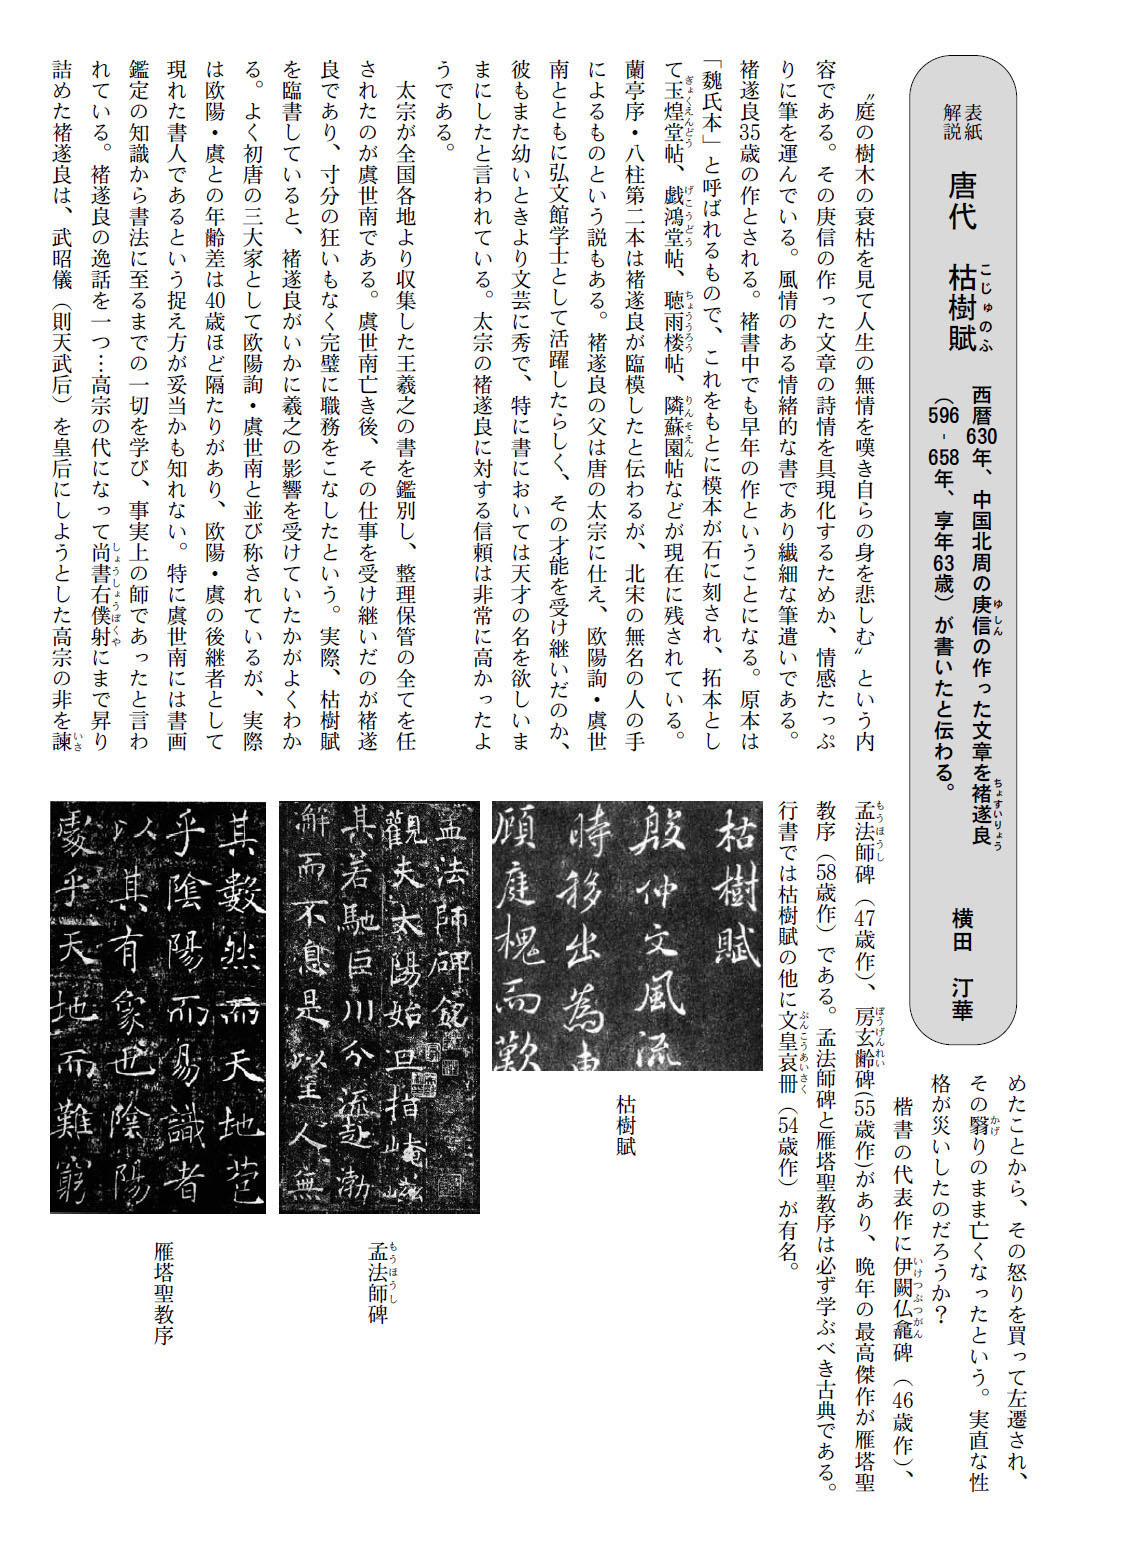 表紙
解説
唐代　枯樹賦
こじゅのふ
西暦630年、中国北周の庾信の作った文章を褚遂良
ゆしん
ちょすいりょう
（596-658年、享年63歳）が書いたと伝わる。
横田　汀華
〝庭の樹木の衰枯を見て人生の無情を嘆き自らの身を悲しむ〟という内
容である。その庾信の作った文章の詩情を具現化するためか、情感たっぷ
りに筆を運んでいる。風情のある情緒的な書であり繊細な筆遣いである。
褚遂良35歳の作とされる。褚書中でも早年の作ということになる。原本は
「魏氏本」と呼ばれるもので、これをもとに模本が石に刻され、拓本とし
て玉煌堂帖、戯鴻堂帖、聴雨楼帖、隣蘇園帖などが現在に残されている。
ぎょくえんどう
げこうどう
ちょううろう
りんそえん
蘭亭序・八柱第二本は褚遂良が臨模したと伝わるが、北宋の無名の人の手
によるものという説もある。褚遂良の父は唐の太宗に仕え、欧陽詢・虞世
南とともに弘文館学士として活躍したらしく、その才能を受け継いだのか、
彼もまた幼いときより文芸に秀で、特に書においては天才の名を欲しいま
まにしたと言われている。太宗の褚遂良に対する信頼は非常に高かったよ
うである。
太宗が全国各地より収集した王羲之の書を鑑別し、整理保管の全てを任
されたのが虞世南である。虞世南亡き後、その仕事を受け継いだのが褚遂
良であり、寸分の狂いもなく完璧に職務をこなしたという。実際、枯樹賦
を臨書していると、褚遂良がいかに羲之の影響を受けていたかがよくわか
る。よく初唐の三大家として欧陽詢・虞世南と並び称されているが、実際
は欧陽・虞との年齢差は40歳ほど隔たりがあり、欧陽・虞の後継者として
現れた書人であるという捉え方が妥当かも知れない。特に虞世南には書画
鑑定の知識から書法に至るまでの一切を学び、事実上の師であったと言わ
れている。褚遂良の逸話を一つ…高宗の代になって尚書右僕射にまで昇り
しょうしょうぼくや
詰めた褚遂良は、武昭儀（則天武后）を皇后にしようとした高宗の非を諫
いさ
めたことから、その怒りを買って左遷され、
その翳りのまま亡くなったという。実直な性
かげ
格が災いしたのだろうか？
楷書の代表作に伊闕仏龕碑（46歳作）、
いけつぶつがん
孟法師碑（47歳作）、房玄齢碑(55歳作)があり、晩年の最高傑作が雁塔聖
もうほうし
ぼうげんれい
教序（58歳作）である。孟法師碑と雁塔聖教序は必ず学ぶべき古典である。
行書では枯樹賦の他に文皇哀冊（54歳作）が有名。
ぶんこうあいさく
枯樹賦
殷仲文風流
時移出為東
顧庭槐而歎
枯樹賦
孟法師碑銘
觀夫太陽始旦指崦嵫
其若馳巨川分流赴渤
解而不息是以至人無
孟法師碑
もうほうし
其數然而天地苞
乎陰陽而易識者
以其有象也陰陽
處乎天地而難窮
雁塔聖教序